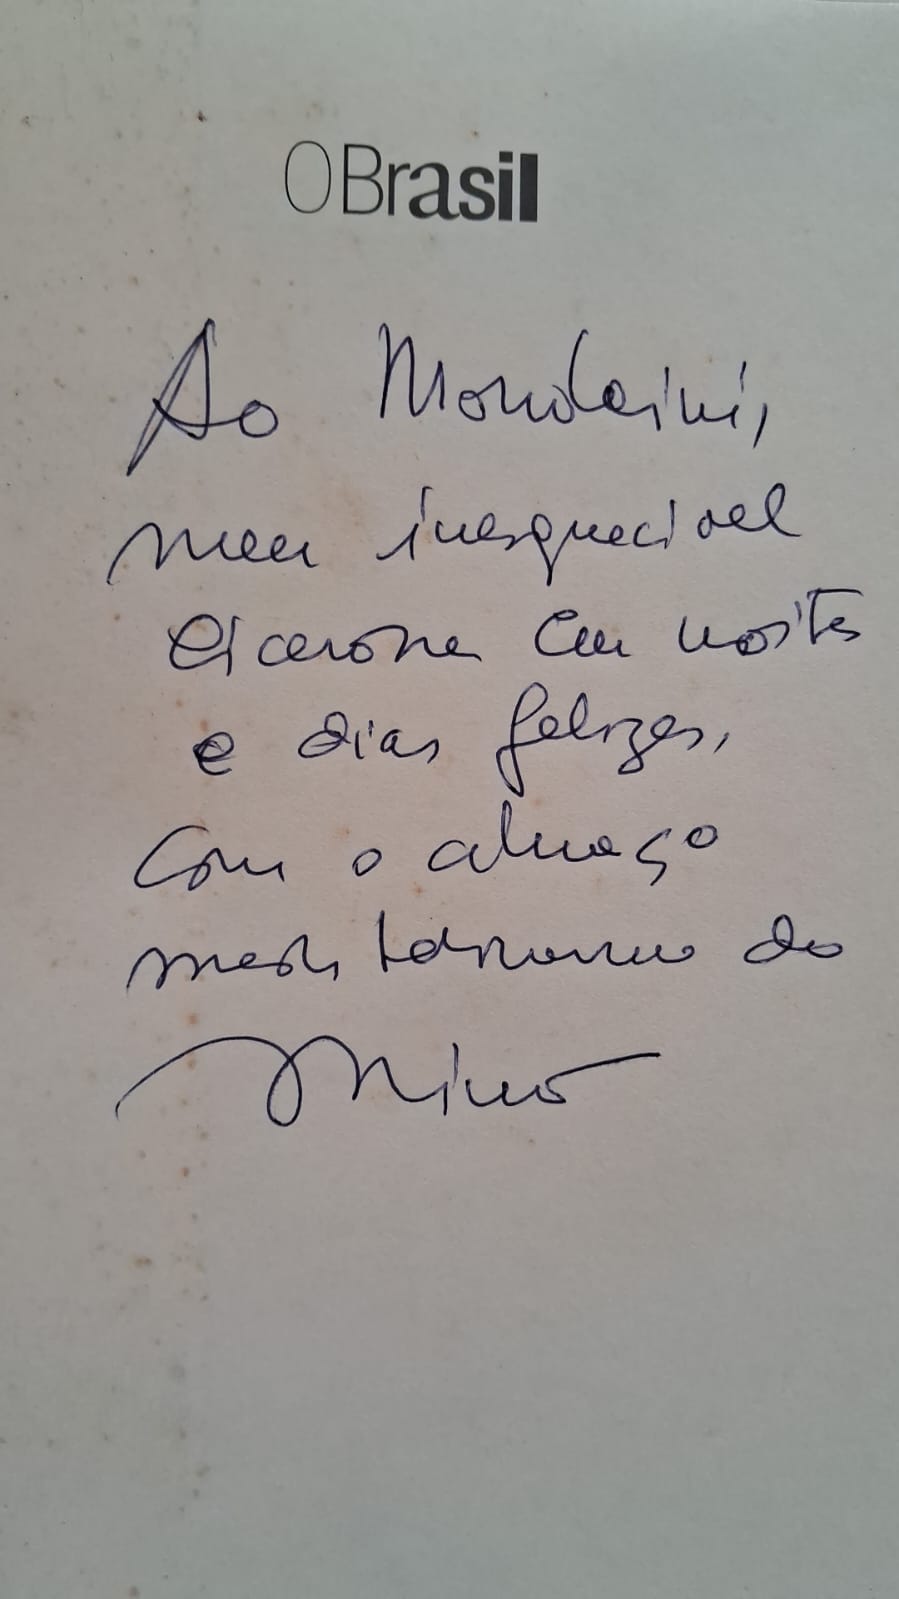 O Brasil
Ao Mondaini,
meu inesquecível
cicerone em noites
e dias felizes,
Com o abraço
mediterraneo do
Mino